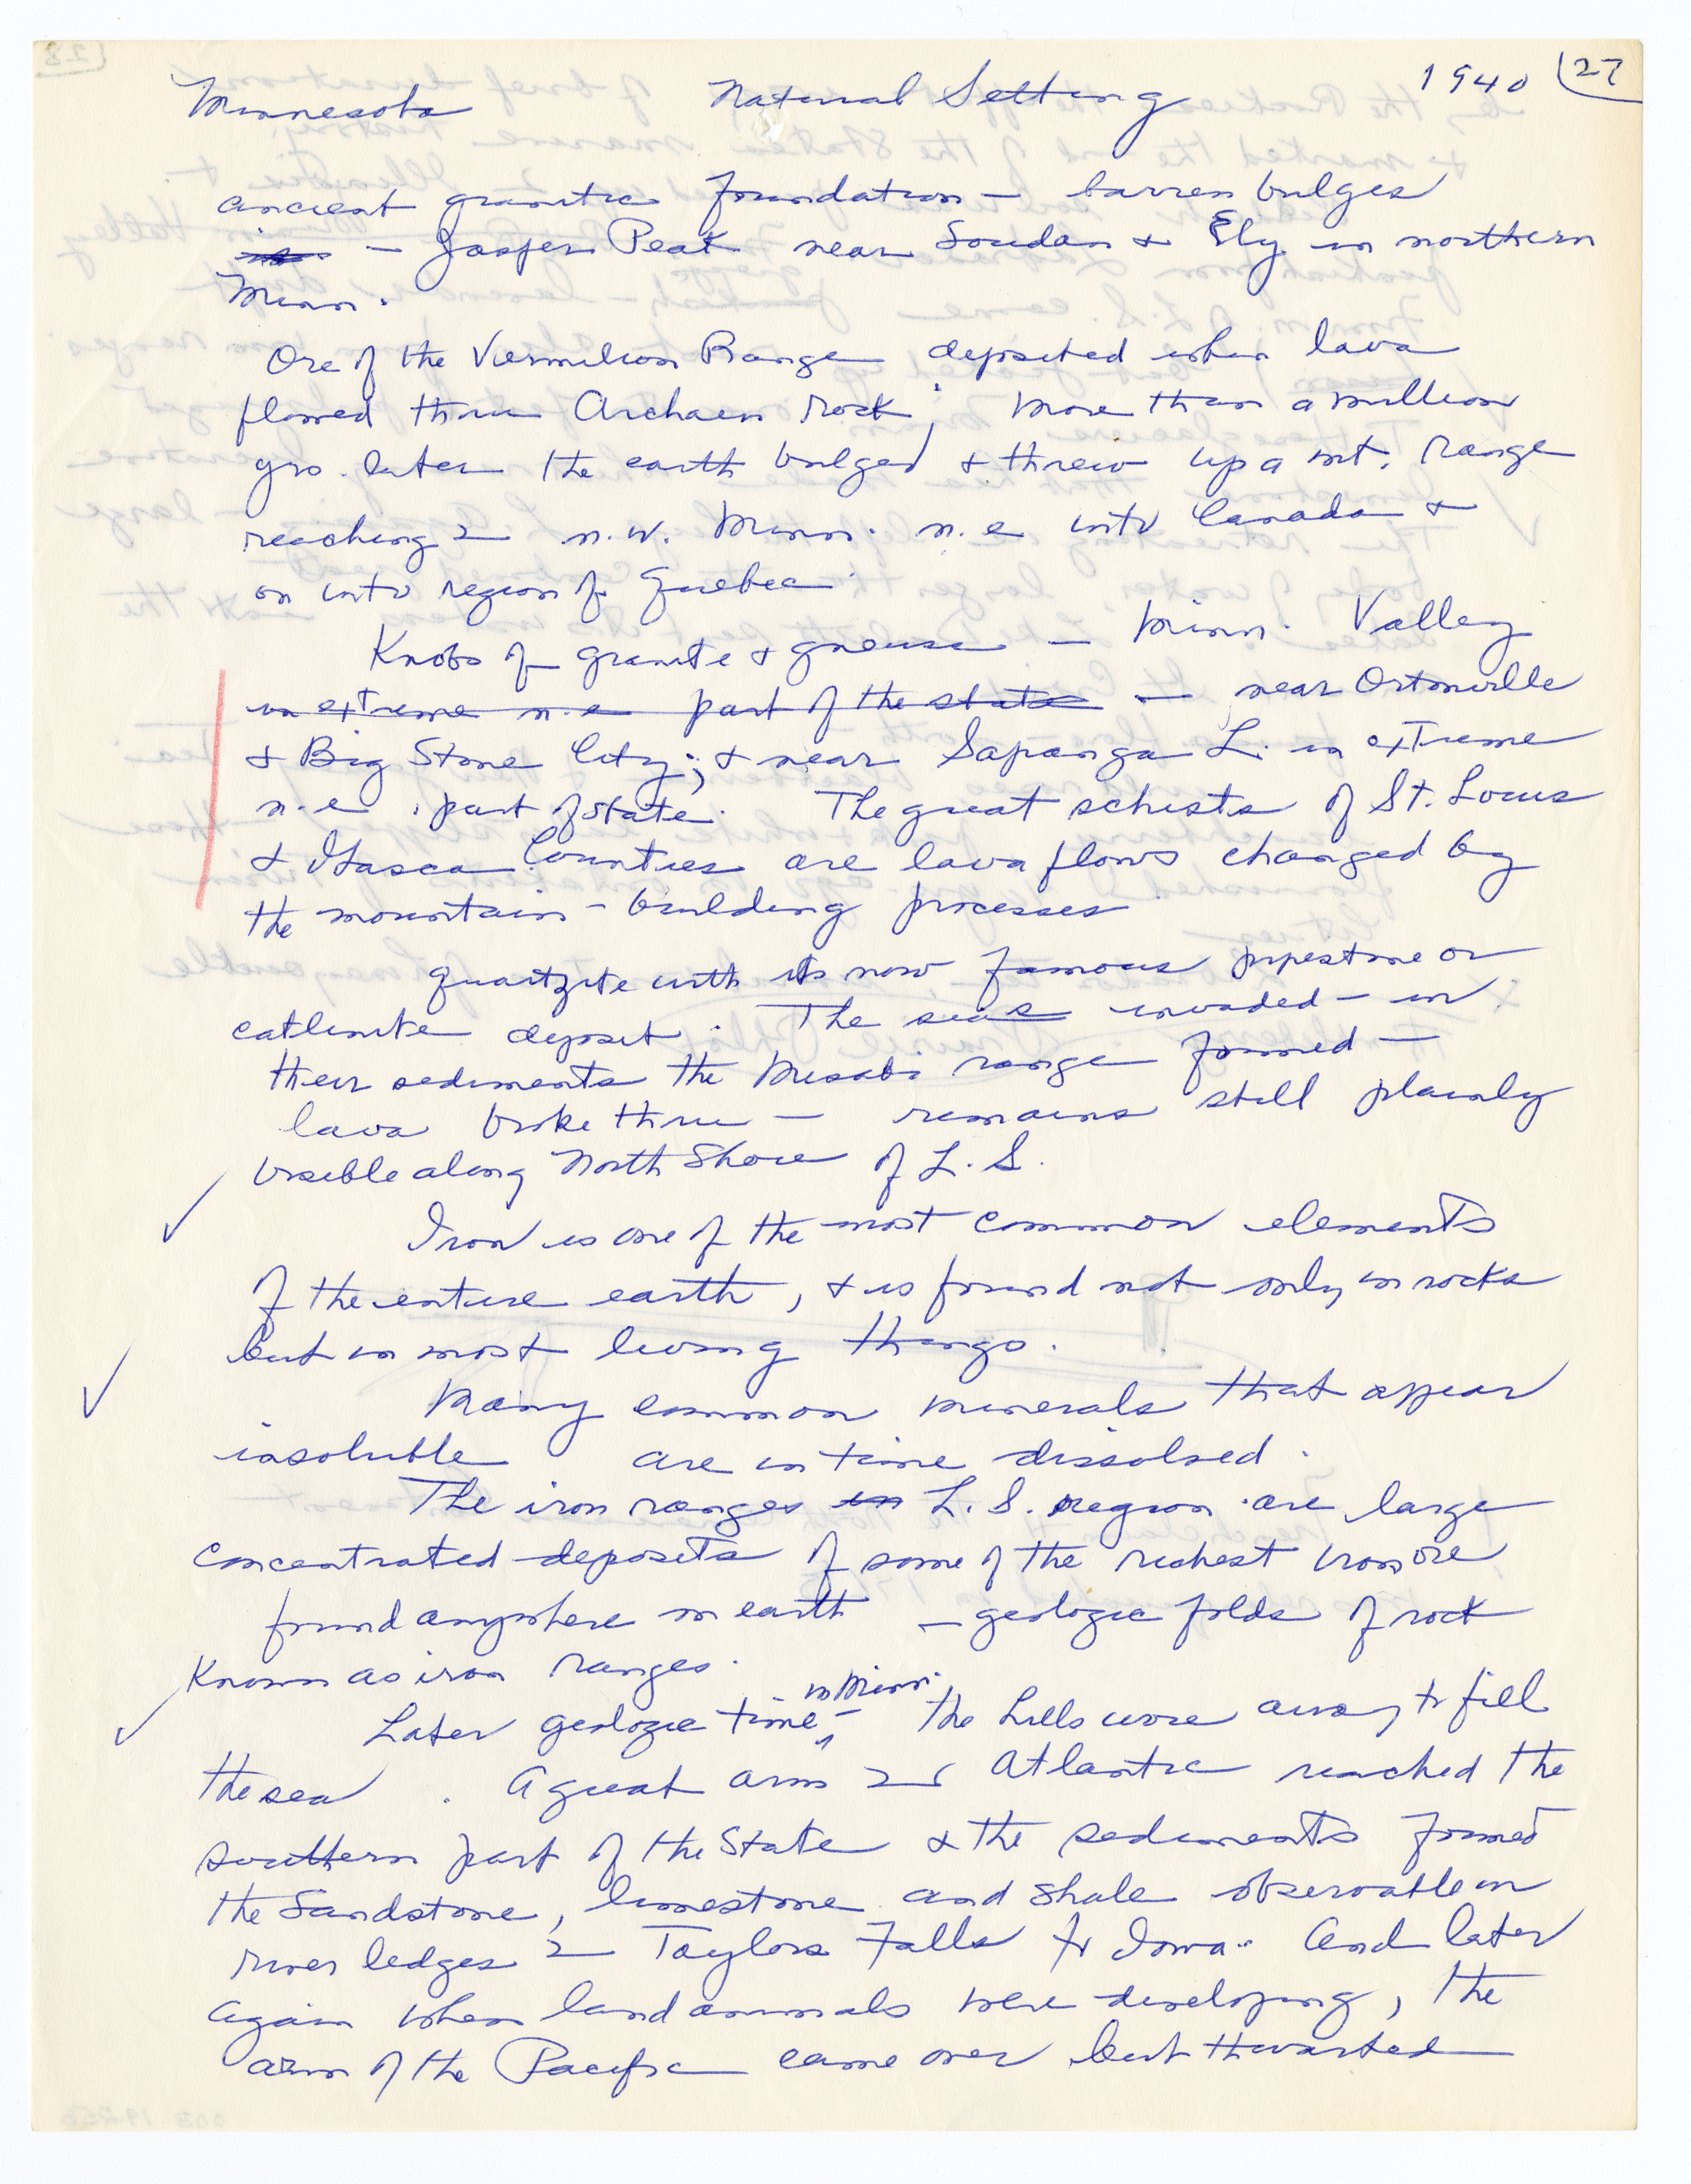 Minnesota Natural Setting 1940 27
ancient granitic foundation — barren bulges
— Jasper Peak near Soudan & Ely in northern
Minn.
Ore of the Vermilion Range deposited when lava
flowed thru Archaen rock; More than a million
yrs. later the earth bulged & threw up a mt. range
reaching n.w. Minn. n.e into Canada &
on into region of Quebec.
Knobs of granite & gneiss — Minn. Valley
in extreme n.e part of the state — near Ortonville
& Big Stone City; & near Sapanga L. in extreme
n.e. part of State. The great schists of St. Louis
& Itasca Counties are lava flows changed by
the mountain-building processes
Quartzite with its now famous pipestone or
catlinite deposit. The seas invaded — in
their sediments the Mesabi range formed —
lava broke thru — remains still plainly
visible along North Shore of L. S.
Iron is one of the most common elements
of the entire earth, & is found not only in rocks
but in most living things.
Many common minerals that appear
insoluble are in time dissolved.
The iron ranges in L. S. region are large
concentrated deposits of some of the richest iron ore
found anywhere on earth — geologic folds of rock
known as iron ranges.
Later geologic time — in Minn. the hills wore away to fill
the sea. A great arm Atlantic reached the
southern part of the State & the sediments formed
the Sandstone, limestone and shale observable in
river ledges Taylors Falls to Iowa. And later
again when land animals were developing, the
arm of the Pacific came over but thwarted